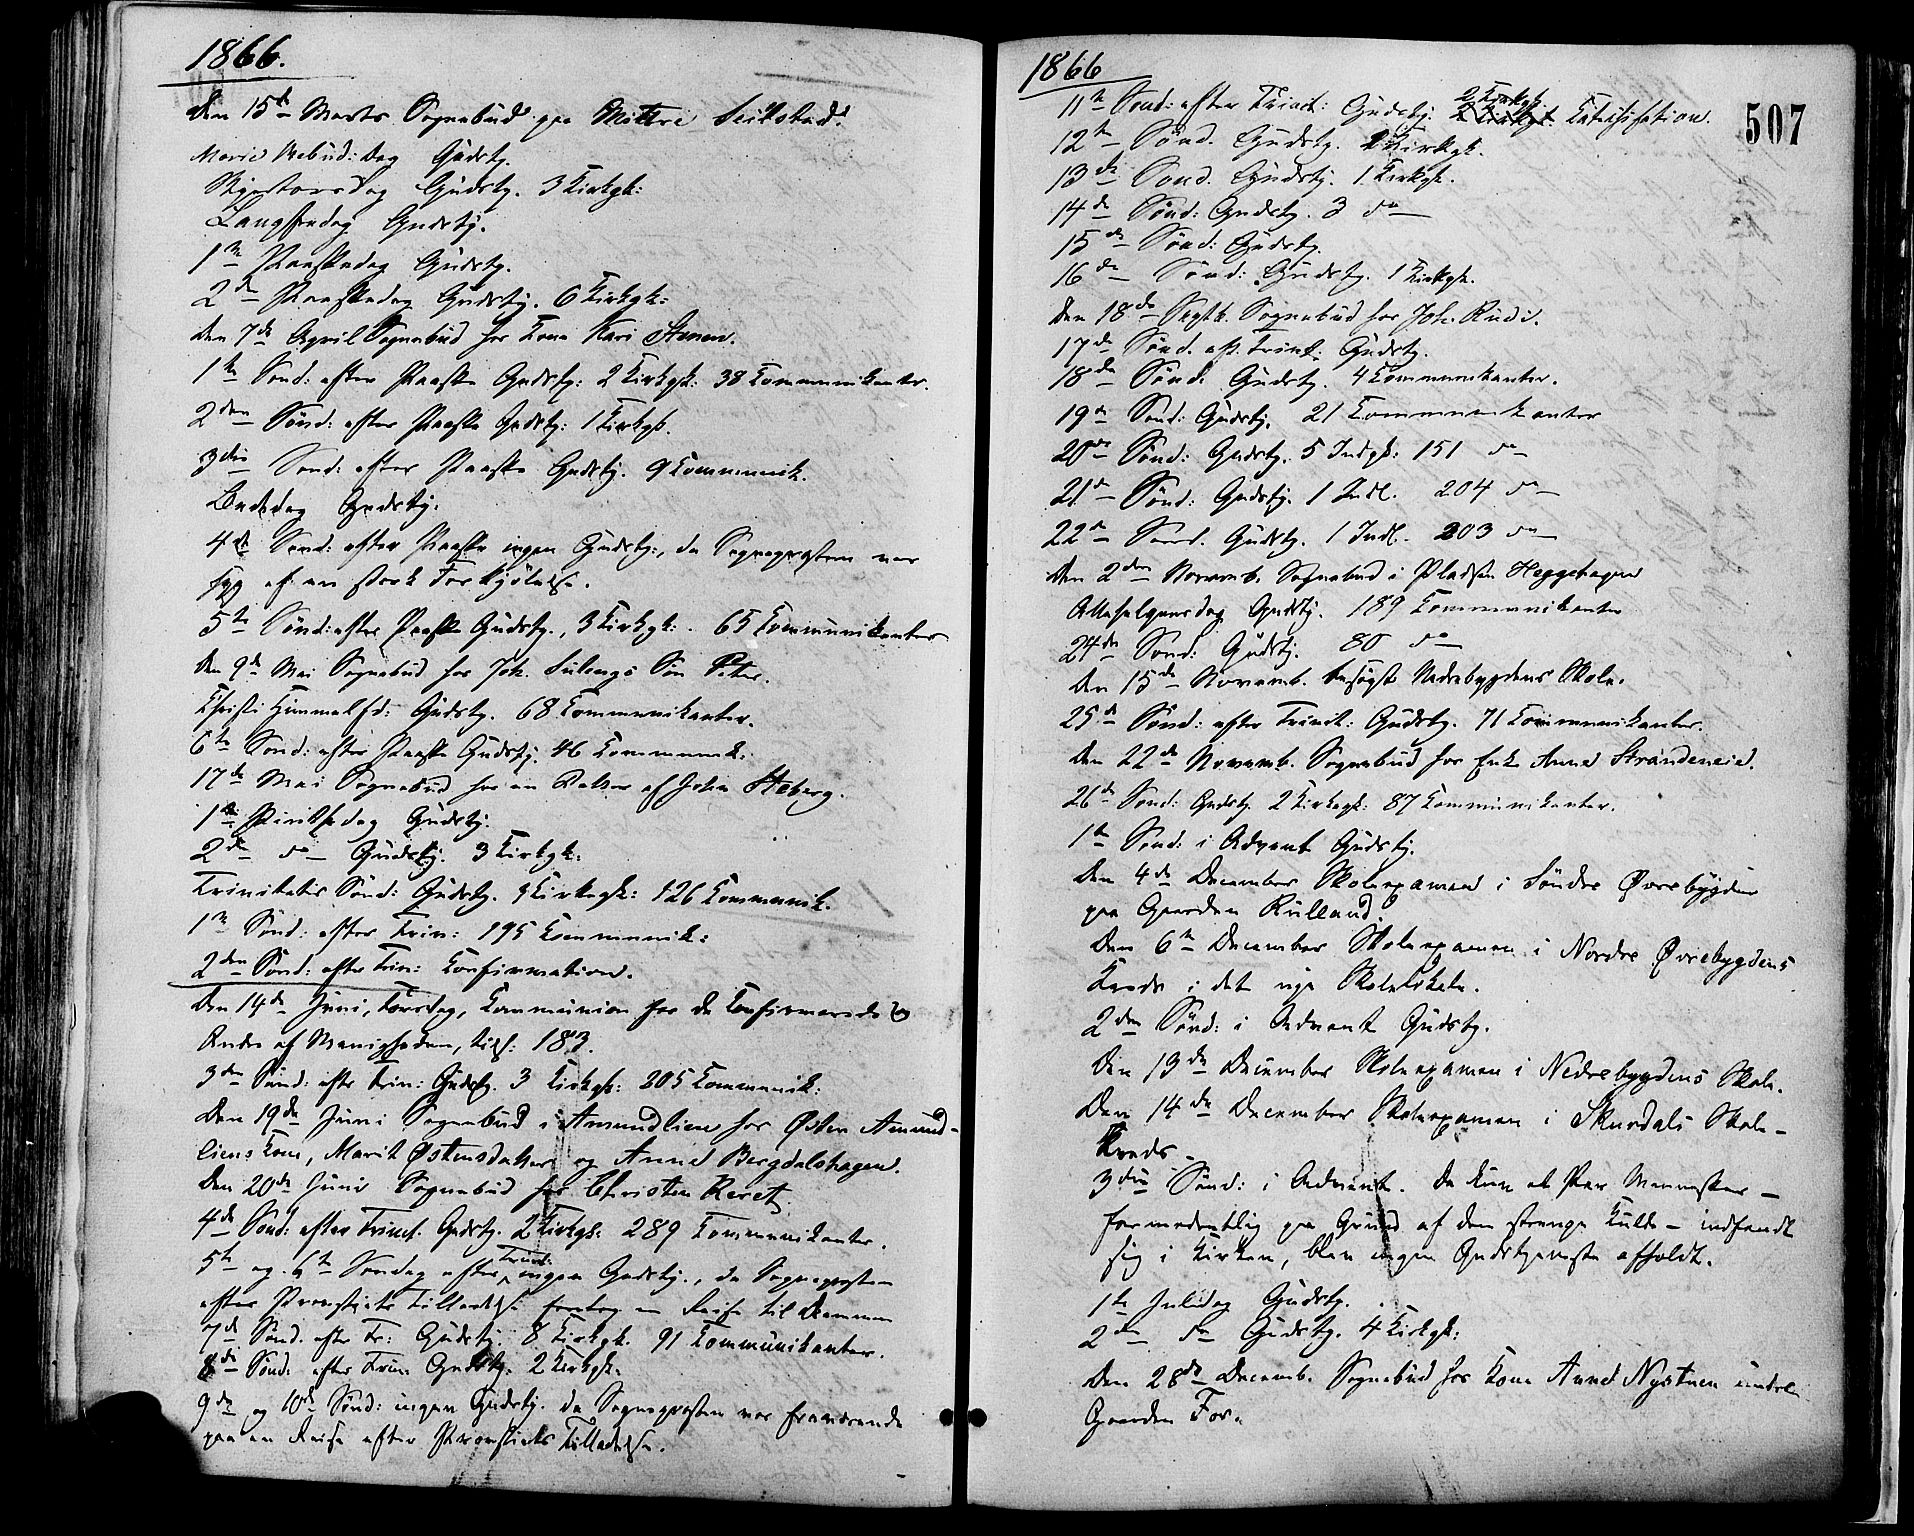 1866.
Den 15de Marts Sognebud paa Mittre
Marie Bebud: Dag Gudstj.
Skjertorsdag Gudstj. 3 Kirkgk:
Langfredag Gudstj.
1te Paaskedag Gudstj.
2de Paaskedag Gudstj. 6 Kirkgk:
Den 7de April Sognebud hos Kone Kari Stenen.
1te Sønd: efter Paaske Gudstj: 2 Kirkgk: 38 Kommunikanter.
2den Sønd: efter Paaske Gudstj: 1 Kirkgk.
3die Sønd: efter Paaske Gudstj. 9 Kommunik.
Bededag Gudstj.
4de Sønd: efter Paaske ingen Gudstj:, da Sognepræsten var
syg af en stærk Forkjølelse.
5te Sønd: efter Paaske Gudstj., 3 Kirkgk: 65 Kommunikanter
Den 9de Mai Sognebud hos Joh. Sulengs Søn Peter.
Christi Himmelfd: Gudstj. 68 Kommunikanter.
6te Sønd: efter Paaske Gudstj. 46 Kommunik.
17de Mai Sognebud hos en Datter af John Steberg.
1te Pintsedag Gudstj.
2de do Gudstj. 3 Kirkgk:
Trinitatis Sønd: Gudstj. Kirkegk: 126 Kommunik.
1te Sønd: efter Trin: 195 Kommunik:
2den Sønd: efter Trin: Confirmation.
Den 14de Juni, Torsdag, Kommunion for de Confirmerede og
Andre af Menigheden, tils: 183.
3die Sønd: efter Trin: Gudstj. 3 Kirkgk: 205 Kommunik:
Den 19de Juni Sognebud i Amundlien hos Østen Amund-
liens Kone, Marit Østensdatter og Anne Bergdalshagen.
Den 20de Juni Sognebud hos Christen Reret
4de Sønd: efter Trinit. Gudstj. 2 Kirkgk: 289 Kommunikanter.
5te og 6te Søndag efter Trinit: ingen Gudstj., da Sognepræsten
efter Provstiets Tilladelse foretog en Reise til Drammen
7de Sønd. efter Tr: Gudstj. 8 Kirkgk. 91 Kommunikanter.
8de Sønd: efter Trin: Gudstj. 2 Kirkgk.
9de og 10de Sønd: ingen Gudstj. da Sognepræsten var fraværende
paa en Reise efter Provstiets Tilladelse.
1866
507
11te Sønd: efter Trinit: Gudstj: 2 Kirkgk. Katechisation.
12te Sønd. Gudstj. 2 Kirkgk.
13de Sønd. Gudstj. 1 Kirkgk.
14de Sønd: Gudstj. 3 do
15de Sønd: Gudstj.
16de Sønd: Gudstj. 1 Kirkgk.
Den 18de Septb. Sognebud hos Joh. Rudi.
17de Sønd. eft. Trinit: Gudstj.
18de Sønd: Gudstj. 4 Kommunikanter.
19de Sønd: Gudstj. 21 Kommunikanter
20de Sønd: Gudstj. 5 Indgk: 151 do
21de Sønd: Gudstj. 1 Indl. 204 do
22de Sønd. Gudstj. 1 Indl. 203 do
Den 2den Novemb. Sognebud i Pladsen Heggehagen
Allehelgensdag Gudstj. 189 Kommunikanter
24de Sønd: Gudstj. 80 do
Den 15de Novemb. besøgt Nedrebygdens Skole.
25de Sønd: efter Trinit: Gudstj. 71 Kommunikanter.
Den 22de Novemb. Sognebud hos Enke Anne Strandeneie.
26de Sønd: Gudstj. 2 Kirkegk: 87 Kommunikanter.
1te Sønd: i Advent Gudstj.
Den 4de December Skoleexamen i Søndre Øvrebygden
paa Gaarden Rulland.
Den 6te December Skoleexamen i Nordre Øvrebygdens
Kreds i det nye Skolelokale.
2den Sønd: i Advent Gudstj.
Den 13de December Skoleexamen i Nedrebygdens Skole.
Den 14de December Skoleexamen i Skurdals Skole-
Kreds.
3die Sønd: i Advent. Da kun et Par Mennesker -
formodentlig paa Grund af den strenge Kulde - indfandt
sig i Kirken, blev ingen Gudstjeneste afholdt.
1te Juledag Gudstj.
2den do Gudstj. 4 Kirkgk:
Den 28de Decemb. Sognebud hos Kone Anne Nystuen under
Gaarden For.